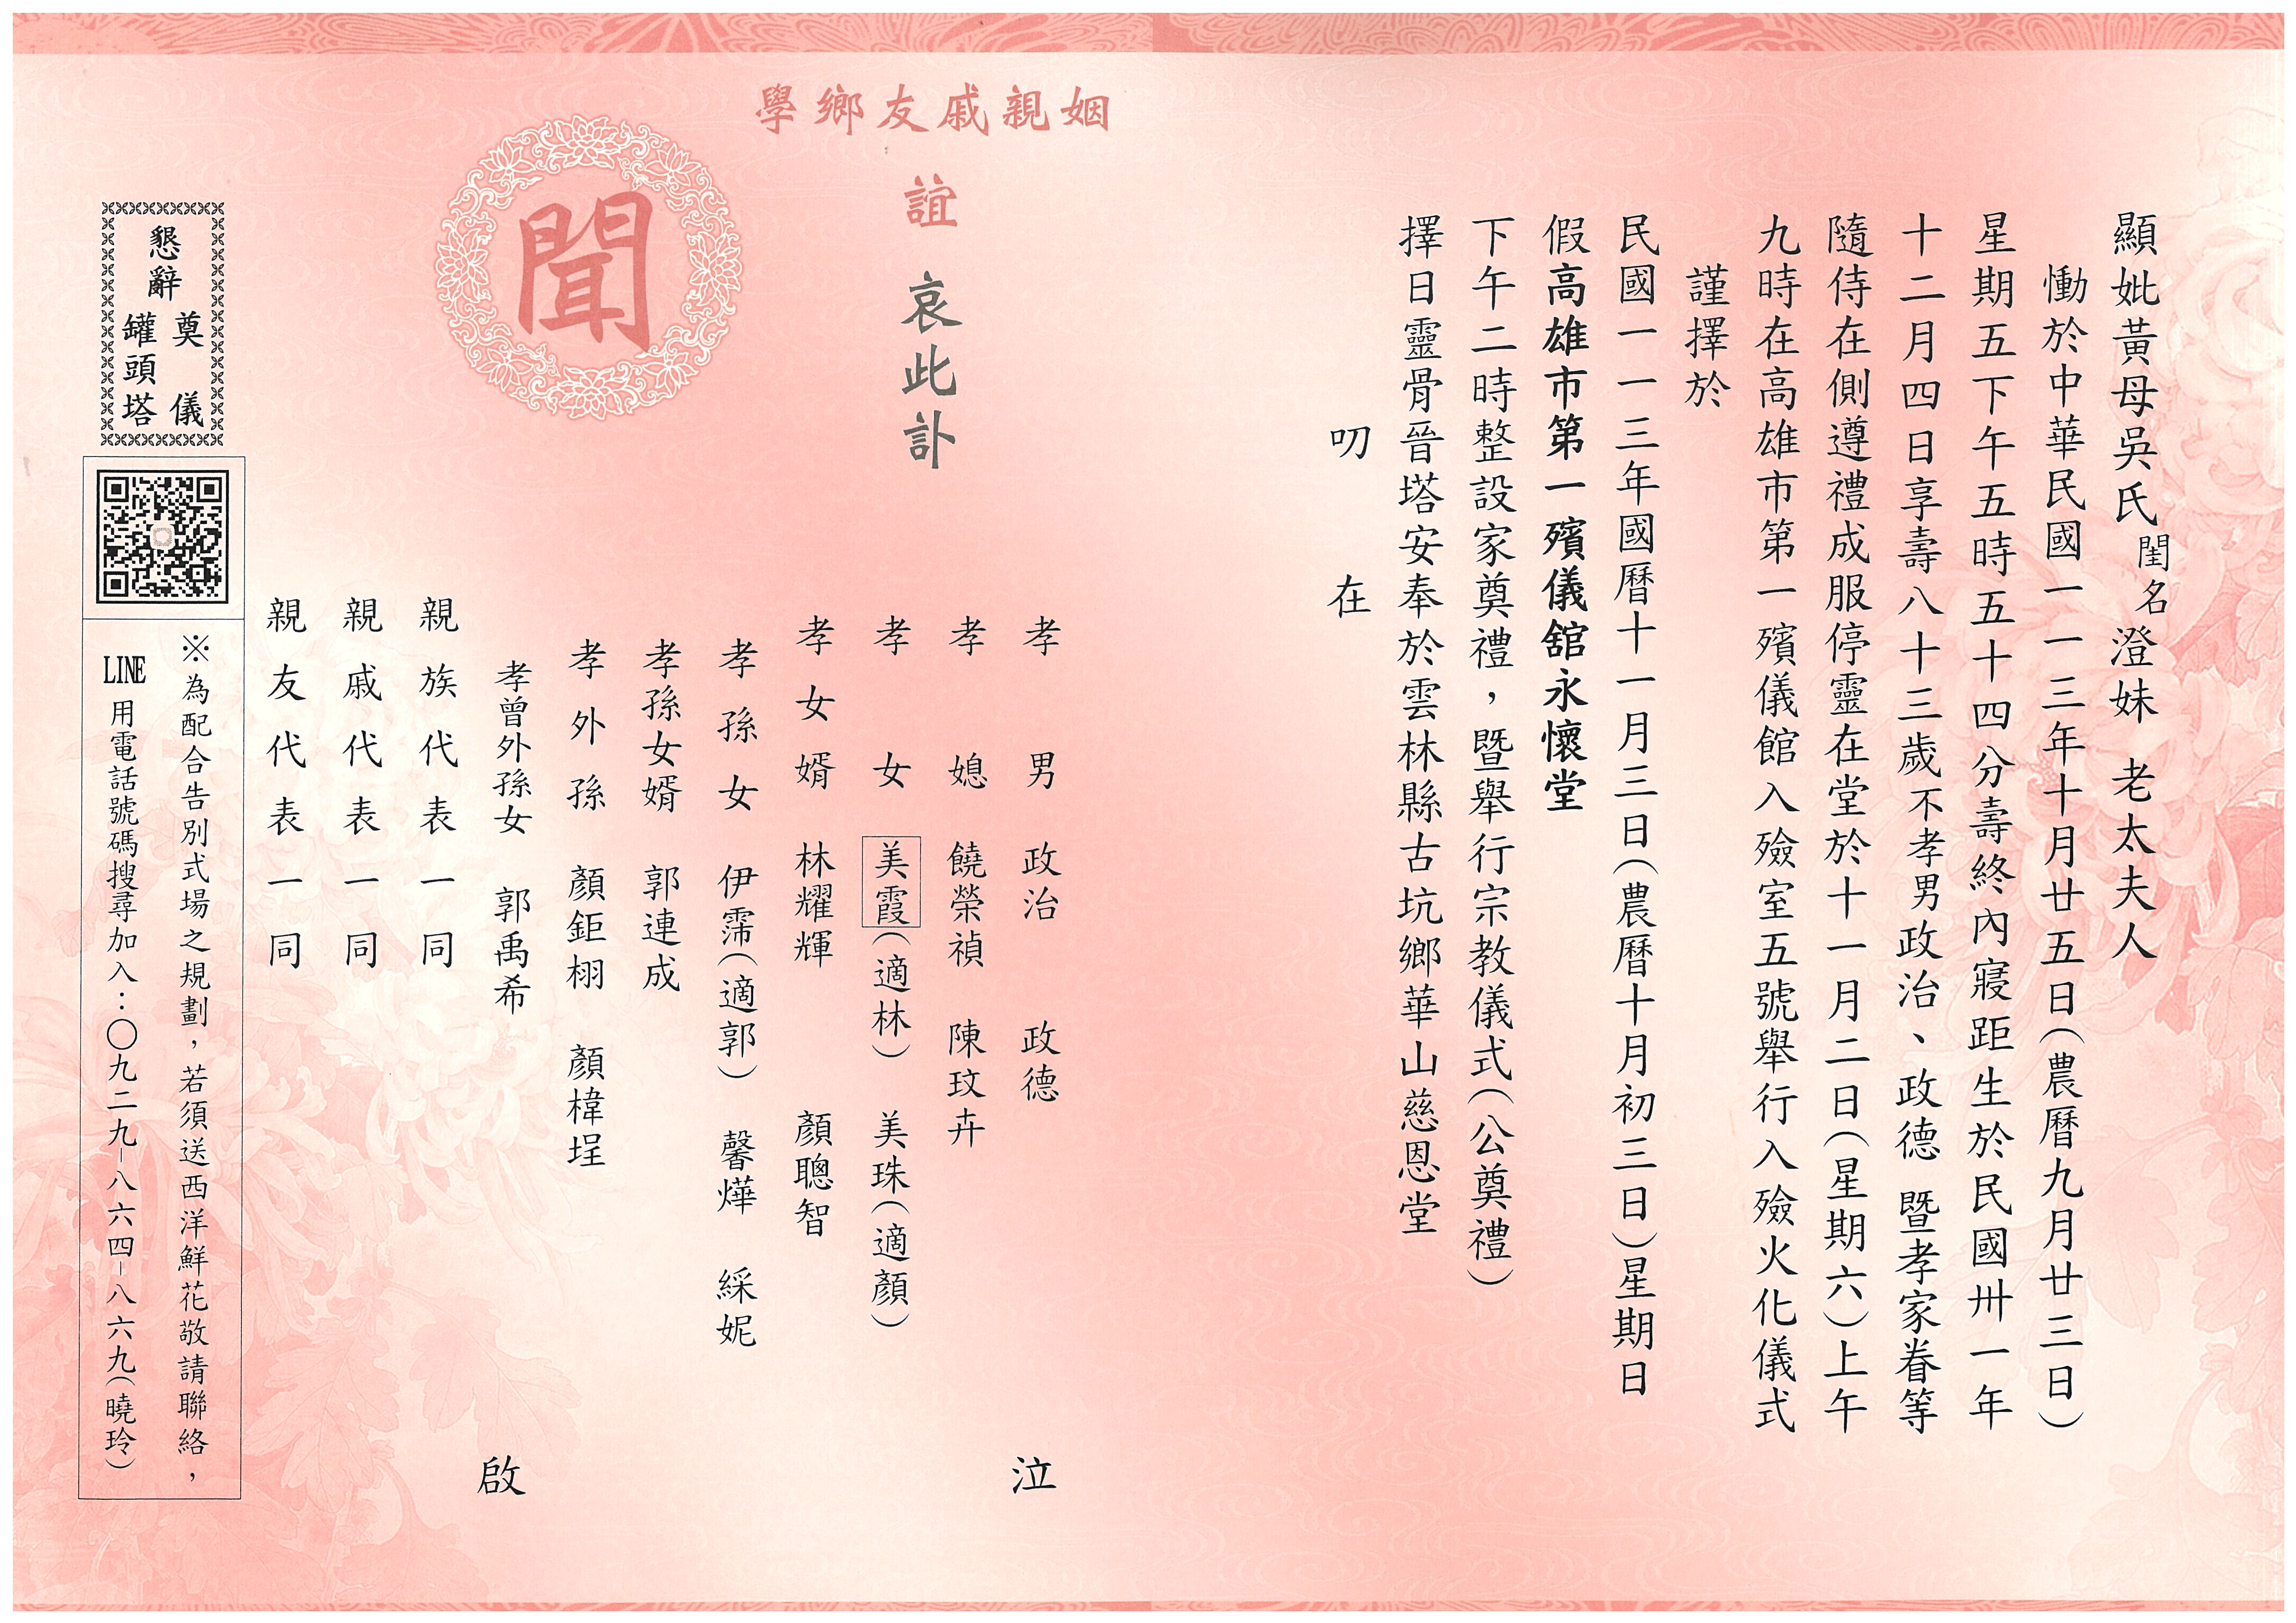 顯妣黃母吳氏閨名澄妹 老太夫人
慟於中華民國一一三年十月廿五日(農曆九月廿三日)
星期五下午五時五十四分壽終內寢距生於民國卅一年
十二月四日享壽八十三歲不孝男政治、政德 暨孝家眷等
隨侍在側遵禮成服停靈在堂於十一月二日(星期六)上午
九時在高雄市第一殯儀館入殮室五號舉行入殮火化儀式
謹擇於
民國一一三年國曆十一月三日(農曆十月初三日)星期日
假高雄市第一殯儀舘永懷堂
下午二時整設家奠禮，暨舉行宗教儀式(公奠禮)
擇日靈骨晉塔安奉於雲林縣古坑鄉華山慈恩堂
叨 在
姻親戚友鄉學
誼 哀此訃
聞
孝男 政治 政德 泣
孝媳 饒榮禎 陳玟卉
孝女 美霞(適林) 美珠(適顏)
孝女婿 林耀輝 顏聰智
孝孫女 伊霈(適郭) 馨燁 綵妮
孝孫女婿 郭連成
孝外孫 顏鉅栩 顏椲埕
孝曾外孫女 郭禹希 啟
親族代表一同
親戚代表一同
親友代表一同
懇辭 奠儀 罐頭塔
※為配合告別式場之規劃，若須送西洋鮮花敬請聯絡，
LINE 用電話號碼搜尋加入：〇九二九-八六四-八六九(曉玲)